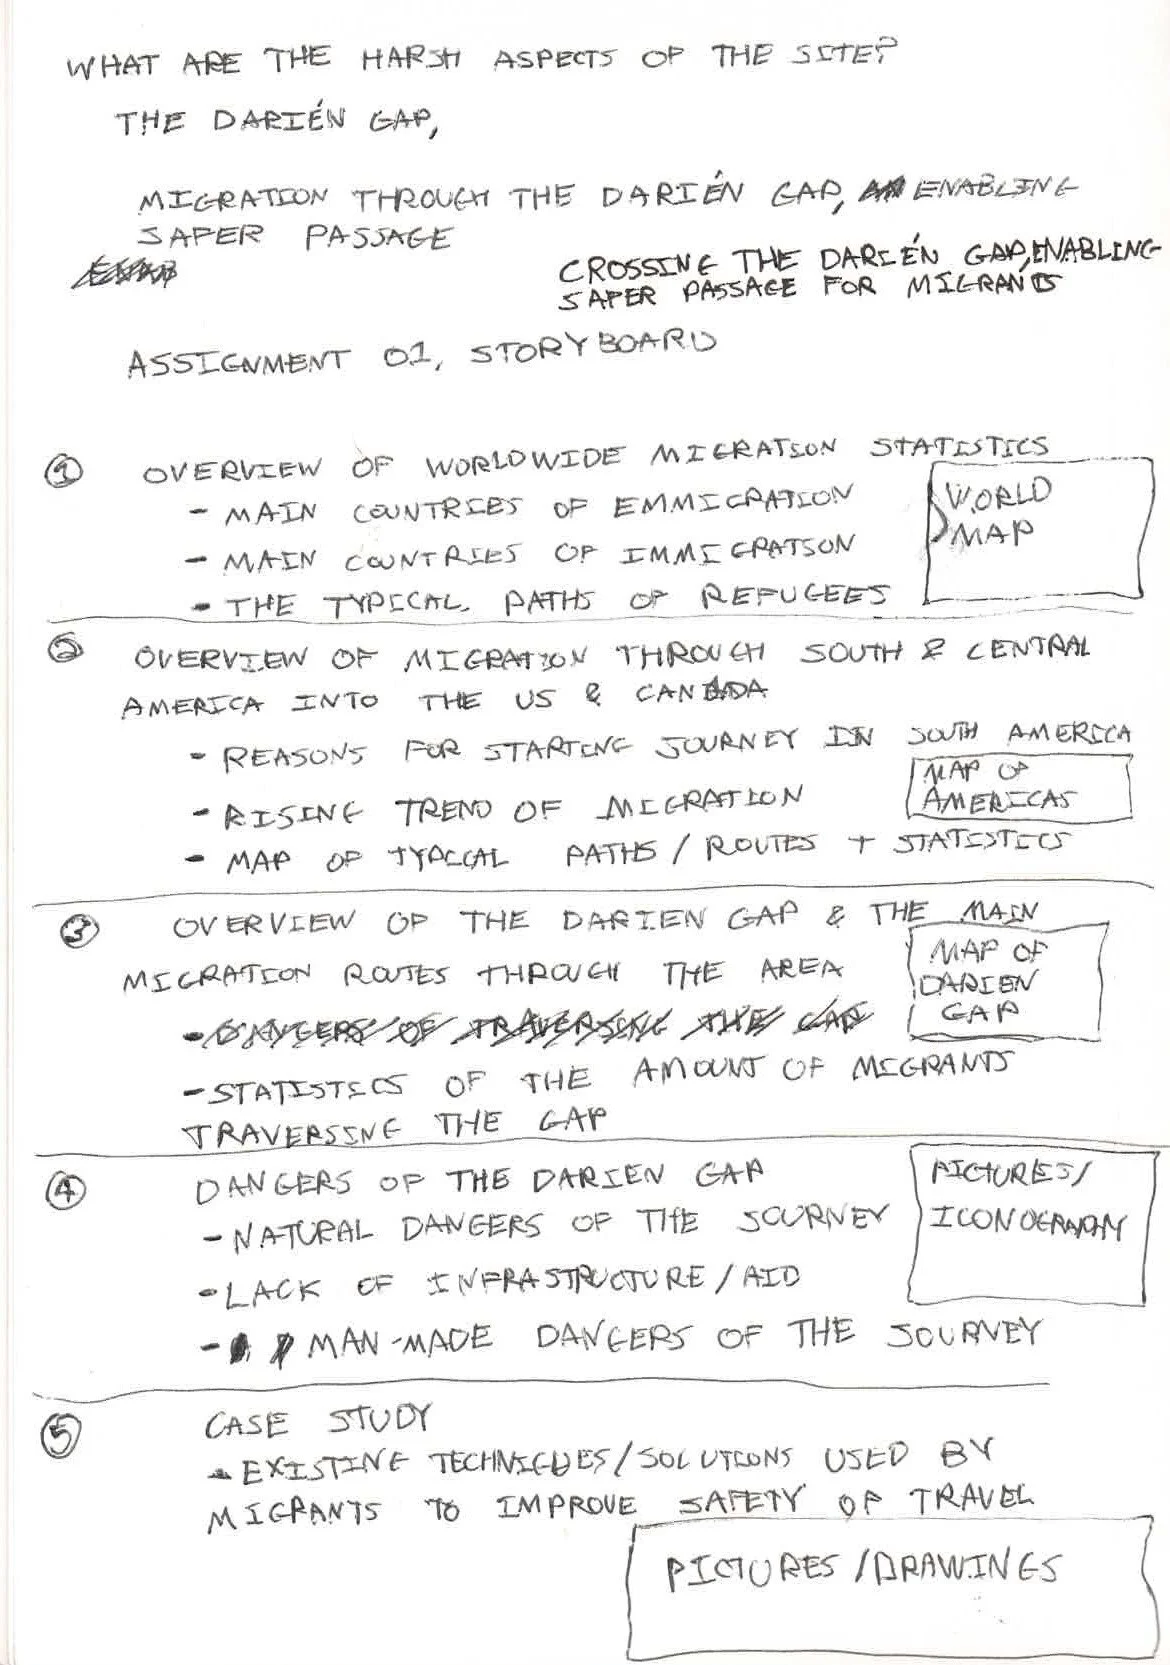 WHAT ARE THE HARSH ASPECTS OF THE SITE?
THE DARIÉN GAP,
MIGRATION THROUGH THE DARIÉN GAP, ENABLING
SAFER PASSAGE
CROSSING THE DARIÉN GAP, ENABLING
SAFER PASSAGE FOR MIGRANTS
ASSIGNMENT 01, STORYBOARD
1 OVERVIEW OF WORLDWIDE MIGRATION STATISTICS
- MAIN COUNTRIES OF EMMIGRATION
- MAIN COUNTRIES OF IMMIGRATION
- THE TYPICAL PATHS OF REFUGEES
WORLD
MAP
2 OVERVIEW OF MIGRATION THROUGH SOUTH & CENTRAL
AMERICA INTO THE US & CANADA
- REASONS FOR STARTING JOURNEY IN SOUTH AMERICA
- RISING TREND OF MIGRATION
- MAP OF TYPICAL PATHS / ROUTES + STATISTICS
MAP OF
AMERICAS
3 OVERVIEW OF THE DARIEN GAP & THE MAIN
MIGRATION ROUTES THROUGH THE AREA
- DANGERS OF TRAVERSING THE GAP
- STATISTICS OF THE AMOUNT OF MIGRANTS
TRAVERSING THE GAP
MAP OF
DARIEN
GAP
4 DANGERS OF THE DARIEN GAP
- NATURAL DANGERS OF THE JOURNEY
- LACK OF INFRASTRUCTURE / AID
- MAN-MADE DANGERS OF THE JOURNEY
PICTURES/
ICONOGRAPHY
5 CASE STUDY
- EXISTING TECHNIQUES/SOLUTIONS USED BY
MIGRANTS TO IMPROVE SAFETY OF TRAVEL
PICTURES / DRAWINGS